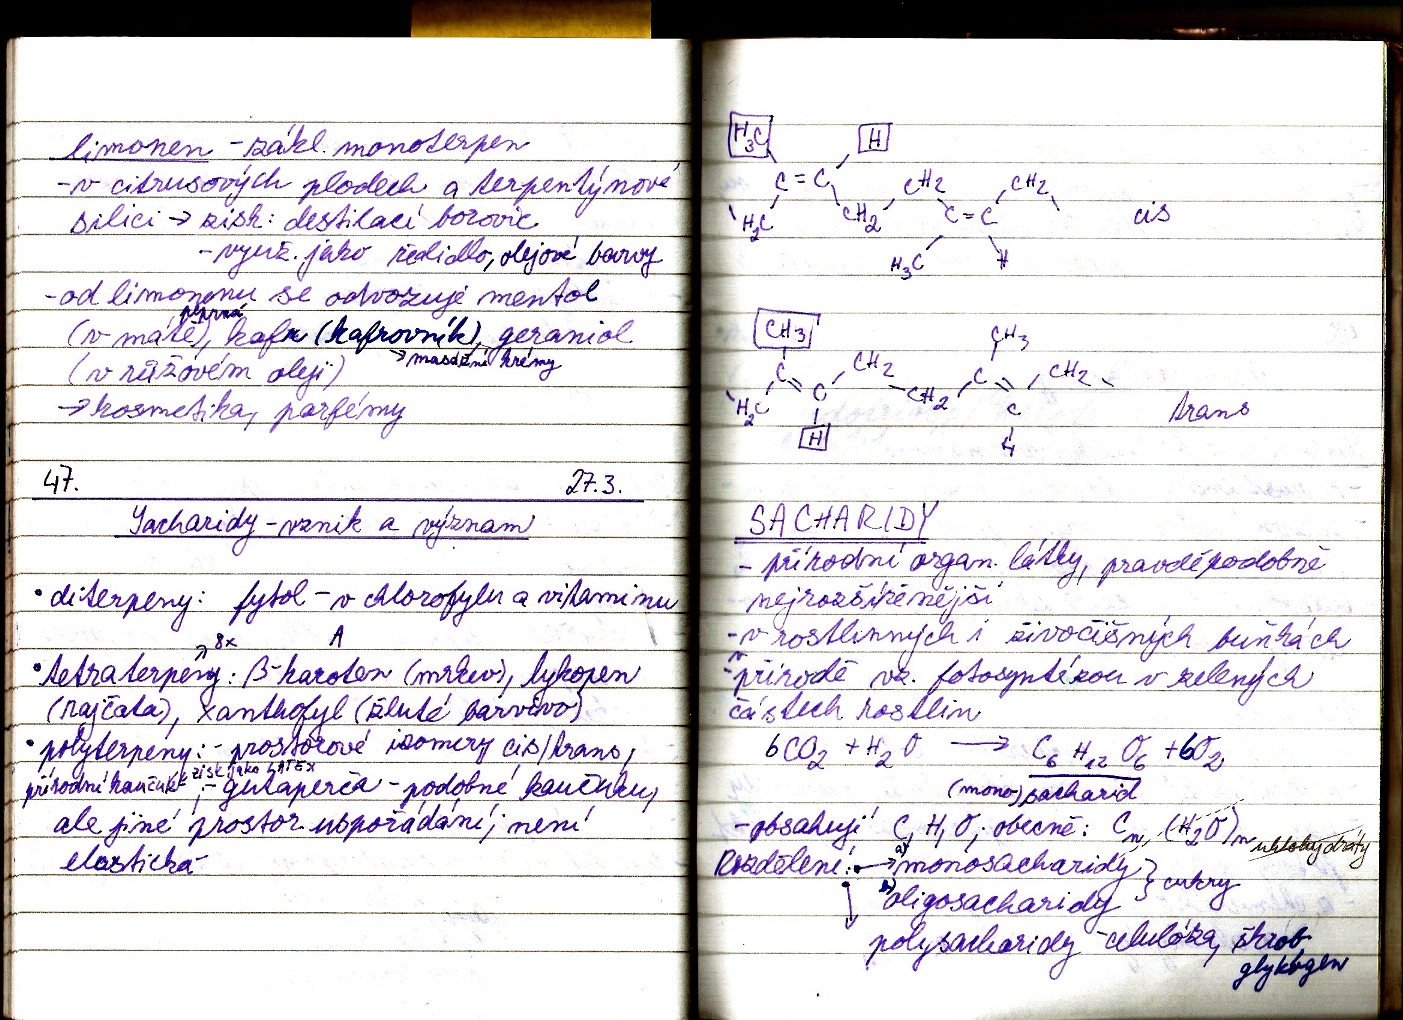 limonen - zákl. monoterpen
-v citrusových plodech a terpentýnové
silici → získ: destilací borovic
-využ. jako ředidlo, olejové barvy
-od limonenu se odvozuje mentol
peprná
(v mátě), kafr (kafrovník), geraniol
→ masážní krémy
(v růžovém oleji)
→ kosmetika, parfémy
47. 27.3.
Sacharidy - vznik a význam
• diterpeny: fytol - v chlorofylu a vitaminu
A
→ 8x
• tetraterpeny: β-karoten (mrkev), lykopen
(rajčata), xanthofyl (žluté barvivo)
• polyterpeny: - prostorové izomery cis/trans,
získ. jako LATEX
přírodní kaučuk, - gutaperča - podobné kaučuku,
ale jiné prostor. uspořádání; není
elastická
H₃C H
C=C CH₂ CH₂
H₂C CH₂ C=C cis
H₃C H
CH₃ CH₃
C CH₂ C CH₂
H₂C C CH₂ C trans
H H
SACHARIDY
- přírodní organ. látky, pravděpodobně
nejrozšířenější
-v rostlinných i živočišných buňkách
-v přírodě vz. fotosyntézou v zelených
částech rostlin
6CO₂ + H₂O → C₆H₁₂O₆ + 6O₂
(mono)sacharid
-obsahují C, H, O; obecně: Cₙ(H₂O)ₙ
uhlohydráty
Rozdělení: → a) monosacharidy } cukry
b) oligosacharidy
polysacharidy - celulóza, škrob
glykogen